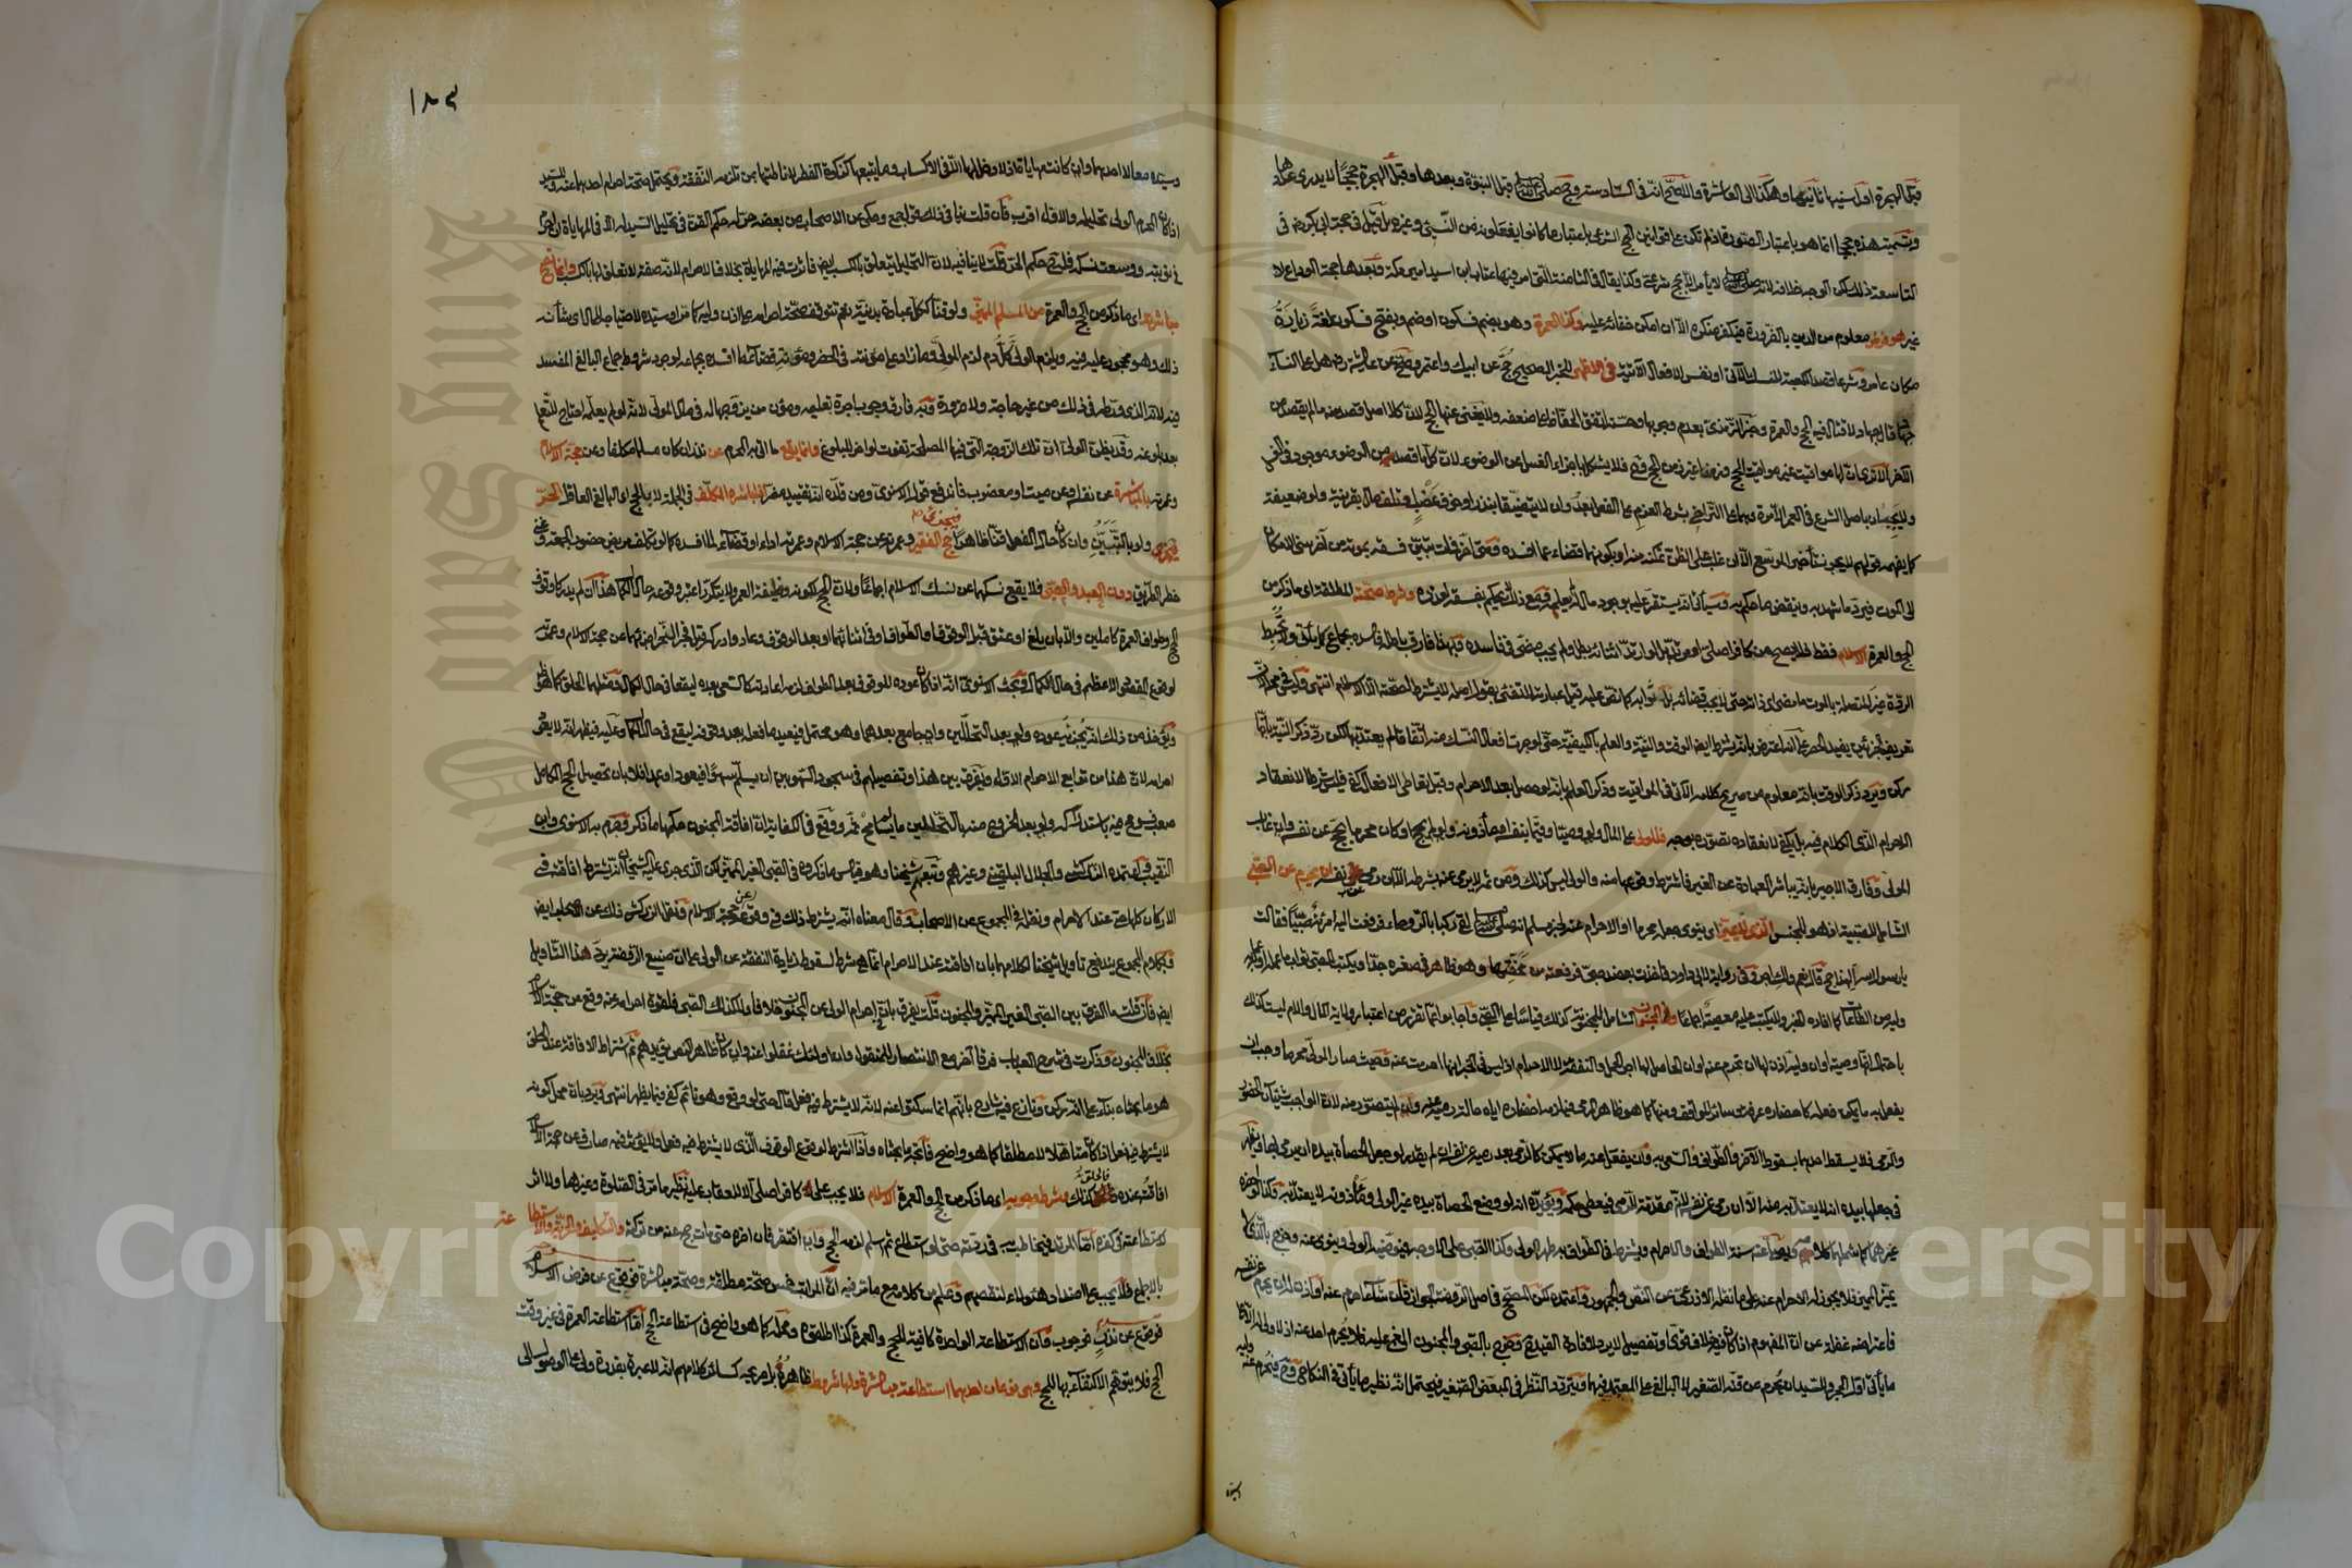 قبل الهجرة اول سنيها ثانيتها وهكذا الى العاشرة والاصح انه في السادسة وحج صلى الله عليه وسلم قبل النبوة وبعدها وقبل الهجرة حججا لا يدرى عددها
وتسمية هذه حججا انما هو باعتبار الصورة اذ لم تكن على قوانين الحج الشرعي باعتبار ما كانوا يفعلونه من النسيء وغيره بل قيل في حجة ابي بكر رضي في
التاسعة ذلك لكن الوجه خلافه لانه صلى الله عليه وسلم لا يأمر الا بحج شرعي وكذا يقال في الثامنة التي امر فيها عتاب ابن اسيد امير مكة وبعدها حجة الوداع لا
غير هو فرض معلوم من الدين بالضرورة فيكفر منكره الا ان امكن خفاؤه عليه وكذا العمرة وهو بضم فسكون او ضم وبفتح فسكون لغة زيارة
مكان عامر وشرعا قصد الكعبة للنسك الآتي او نفس الافعال الآتية في الاظهر للخبر الصحيح حج عن ابيك واعتمر وصح عن عائشة رضي هل على النساء
جهاد قال جهاد لا قتال فيه الحج والعمرة وخبر الترمذي بعدم وجوبها وحسنه اتفق الحفاظ على ضعفه ولا يغني عنها الحج لان كلا اصل قصد منه ما لم يقصد من
الآخر الا ترى ان لها مواقيت غير مواقيت الحج وزمنا غير زمن الحج وح فلا يشكل باجزاء الغسل عن الوضوء لان كل ما قصد من الوضوء موجود في الغسل
ولا يجبان باصل الشرع في العمر الا مرة وهما على التراخي بشرط العزم على الفعل بعد وان لا يتضيقا بنذر او خوف عضب وتلف مال بقرينة ولو ضعيفة
كما يفهمه قولهم لا يجوز تأخير الموسع الا ان غلب على الظن تمكنه منه او بكونهما قضاء عما افسده ومتى اخر فمات تبين فسقه بموته من آخر سني الامكان
الى الموت فيرد ما شهد به وينقض ما حكم به وسيأتي انه يستقر عليه بوجود مال لم يعلم ومع ذلك لا يحكم بفسقه لعذره وشرط صحته المطلقة اي ما ذكر من
الحج والعمرة الاسلام فقط فلا يصح من كافر اصلي او مرتد بل لو ارتد اثناءه بطل ولم يجب مضي في فاسده وبهذا فارق باطله فاسده بجماع كما يأتي ولا تحبط
الردة غير المتصلة بالموت ما مضى اي ذاته حتى لا يجب قضاؤه بل ثوابه كما نص عليه
تعريف الجزئين يفيد الحصر على انه اعترض بانه يشترط ايضا الوقت والنية والعلم بالكيفية حتى لو جرت افعال النسك منه اتفاقا لم يعتد بها لكن رد ذكر النية بانها
ركن ويرد ذكر الوقت بانه معلوم من صريح كلامه الآتي في المواقيت وذكر العلم بانه لو حصل بعد الاحرام وقبل تعاطي الافعال كفى فليس شرطا لانعقاد
الاحرام الذي الكلام فيه بل يكفي لانعقاده تصوره بوجه فللولي على المال ولو وصيا وقيما بنفسه او مأذونه ولو لم يحج وكان محرما بحج عن نفسه وان غاب
المولى وفارق الاجير بانه يباشر العبادة عن الغير فاشترط وقوعها منه والولي ليس كذلك ومن ثم لا يرمي عنه بشرطه الا ان رمى عن نفسه ان يحرم عن الصبي
الشامل للصبية اذ هو للجنس الذي لا يميز اي ينوي جعله محرما او الاحرام عنه لخبر مسلم انه صلى الله عليه وسلم لقي ركبا بالروحاء فرفعت اليه امرأة صبيا فقالت
يا رسول الله ألهذا حج قال نعم ولك اجر وفي رواية لابي داود فاخذت بعضد صبي فرفعته من محفتها وهو ظاهر في صغره جدا ويكتب للصبي ثواب ما عمله او عمله
وليه من الطاعات كما افاده الخبر ولا يكتب عليه معصية اجماعا وفي المجنون الشامل للمجنونة كذلك قياسا على الصبي وأجابوا عما تقرر من اعتبار ولاية المال والام ليست كذلك
باحتمال انها وصية او ان وليه اذن لها ان تحرم عنه او ان الحاصل لها اجر الحمل والنفقة لا الاحرام اذ ليس في الخبر انها احرمت عنه وحيث صار المولى محرما وجب ان
يفعل به ما يمكن فعله كاحضاره عرفة وسائر المواقف ومنها كما هو ظاهر الرمي فيلزمه احضاره اياه حالة رميه عنه وان لم يتصور منه لان الواجب شيئان الحضور
والرمي فلا يسقط احدهما بسقوط الآخر والطواف والسعي به وان يفعل عنه ما لا يمكن كالرمي بعد رميه عن نفسه ان لم يقدر لو جعل الحصاة بيده ان يرمي بها ويظهر
في جعلها بيده انه لا يعتد به عنه الا ان رمى عن نفسه لانه مقدمة للرمي فيعطى حكمه ويؤيده انه لو وضع الحصاة بيده غير الولي ومأذونه لا يعتد به وكذا لو احضره
غيرهما كما شملها كلامهم ويصلي عنه سنة الطواف والاحرام ويشترط في الطواف به طهر الولي وكذا الصبي على الاوجه فيوضئه الولي وينوي عنه وخرج بالذي لا
يميز المميز فلا يجوز له الاحرام عنه على ما نقله الاذرعي عن النص والجمهور واعتمده لكن المصحح في اصل الروضة الجواز قال ان شاء احرم عنه او اذن له ان يحرم عن نفسه
فاعتراضه غفلة عن ان المفهوم اذا كان فيه خلاف قوي او تفصيل لا يرد لافادة القيد ح وخرج بالصبي والمجنون المغمى عليه فلا يحرم احد عنه اذ لا ولي له الا كما
ما يأتي اول الحجر وللسيد ان يحرم عن قنه الصغير لا البالغ على المعتمد فيهما ويتردد النظر في المبعض الصغير فيحتمل انه نظير ما يأتي في النكاح وح فيحرم عنه وليه
١٨٣
وسيده معا لا احدهما وان كانت مهايأة اذ لا دخل لها الا في الاكساب وما يتبعها كزكاة الفطر لاناطتها بمن تلزمه النفقة ويحتمل صحة احرام احدهما عنه وللسيد
اذا كان المحرم الولي تحليله والاول اقرب فان قلت ينافي ذلك قول جمع وحكي عن الاصحاب من بعضه حر له حكم القن في تحليل السيد له الا في المهاياة ان احرم
في نوبته ووسعت نسكه فليس ح كحكم الحر قلت لا ينافيه لان التحليل يتعلق بالكسب ايضا فاثرت فيه المهايأة بخلاف الاحرام لانه صفة لا تعلق لها بالكسب وانما تصح
مباشرته اي ما ذكر من الحج والعمرة من المسلم المميز ولو قنا ككل عبادة بدنية نعم تتوقف صحة احرامه على اذن وليه كما مر او سيده للاحتياج للمال اي شأنه
ذلك وهو محجور عليه فيه ويلزم الولي كل دم لزم المولى وما زاد على مؤنته في الحضر ومؤنة قضاء ما افسده بجماعه لوجود شروط جماع البالغ المفسد
فيه لانه الذي ورطه في ذلك من غير حاجة ولا ضرورة وبه فارق وجوب اجرة تعليمه ومؤن من يزوجها له في مال المولى لانه لو لم يعلمه احتاج للتعلم
بعد بلوغه وقد يظن الولي ان تلك الزوجة التي فيها المصلحة تفوت لو اخر للبلوغ وانما يقع ما اتى به المحرم عن نذر ان كان مسلما مكلفا وعن حجة الاسلام
وعمرته بالمباشرة عن نفسه وعن ميت او معضوب فاندفع قول الاسنوي ومن قلده انه تقييد مضر اذا باشره المكلف في الجملة لا بالحج اي البالغ العاقل الحر
فيجزئ ولو بالتبين وان كان حال الفعل قنا ظاهرا حج الفقير وعمرته عن حجة الاسلام وعمرته اداء او قضاء لما افسده كما لو تكلف مريض حضور الجمعة وغني
خطر الطريق دون العبد والصبي فلا يقع نسكهما عن نسك الاسلام اجماعا ولان الحج لكونه وظيفة العمر ولا يتكرر اعتبر وقوعه حال الكمال هذا ان لم يدركا وقوف
الحج وطواف العمرة كاملين والا بان بلغ او عتق قبل الوقوف او الطواف او في اثنائهما او بعد الوقوف وعاد وادركه قبل فجر النحر اجزأهما عن حجة الاسلام وعمرته
لوقوع المقصود الاعظم في حال الكمال وبحث الاسنوي انه اذا كان عوده للوقوف بعد الطواف لزمه اعادته كالسعي بعده ليقعا في حال الكمال ومثلهما الحلق كما هو ظاهر
ويؤخذ من ذلك انه يجزئه عوده ولو بعد التحللين وان جامع بعدهما وهو محتمل فيعيد ما فعله بعد وقوفه ليقع في حال الكمال وعليه فيظهر انه لا يعيد
احرامه لان هذا من توابع الاحرام الاول ويفرق بين هذا وتفصيلهم في سجود السهو بين ان يسلم سهوا فيعود او عمدا فلا بان تحصيل الحج الكامل
صعب فسومح فيه باستدراكه ولو بعد الخروج منه بالتحللين ما لم يسامح ثم ووقع في الكفاية ان افاقة المجنون حكمها ما ذكر وجزم به الاسنوي وابن
النقيب واعتمده الزركشي والجلال البلقيني وغيرهم وتبعهم شيخنا وهو قياس ما ذكروه في الصبي الغير المميز لكن الذي جرى عليه الشيخان انه تشترط افاقته في
الاركان كلها حتى عند الاحرام ونقله في المجموع عن الاصحاب وقال معناه انه يشترط ذلك في وقوعه عن حجة الاسلام ونقل الزركشي ذلك عن الاصحاب ايضا
وبكلام المجموع يندفع تأويل شيخنا لكلامهما بان افاقته عند الاحرام انما هو شرط لسقوط زيادة النفقة عن الولي على ان صنيع الروضة يرد هذا التأويل
ايضا فان قلت ما الفرق بين الصبي الغير المميز والمجنون قلت يفرق بان في احرام الولي عن المجنون خلافا ولا كذلك الصبي فلقوة احرامه عنه وقع عن حجة الاسلام
بخلاف المجنون وذكرت في شرح العباب فرقا آخر مع الانتصار للمنقول وان اولئك غفلوا عنه وان كان ظاهر النص يؤيدهم ثم اشتراط الافاقة عند الحلق
هو ما بحثاه بناء على انه ركن ونازع فيه شارح بانهم انما سكتوا عنه لانه لا يشترط فيه فعل قال حتى لو وقع وهو نائم كفى فيما يظهر انتهى ويرد بان محل كونه
لا يشترط فيه فعل اذا كان متأهلا لا مطلقا كما هو واضح فاتجه ما بحثاه واذا اشترط لوقوع الوقوف الذي لا يشترط فيه فعل ولا يؤثر فيه صارف عن حجة الاسلام
افاقته عنده فالحلق كذلك وشرط وجوبه اي ما ذكر من الحج والعمرة الاسلام فلا يجب على كافر اصلي الا للعقاب عليه نظير ما مر في الصلوة وغيرها ولا اثر
لاستطاعته في كفره اما المرتد فيخاطب به في ردته حتى لو استطاع ثم اسلم لزمه الحج وان افتقر فان اخره حتى مات حج عنه من تركته والتكليف والحرية والاستطاعة
بالاجماع فلا يجب مع اضداد هؤلاء لنقصهم وعلم من كلامه مع ما مر فيه ان المراتب خمس صحة مطلقة وصحة مباشرة فوقوع عن فرض الاسلام
فوقوع عن نذر فوجوب وان الاستطاعة الواحدة كافية للحج والعمرة كذا اطلقوه ومحله كما هو واضح في استطاعة الحج اما استطاعة العمرة في غير وقت
الحج فلا يتوهم الاكتفاء بها للحج وهي نوعان احدهما استطاعة مباشرة ولها شروط ظاهره بل صريحه كسائر كلامهم انه لا عبرة بقدرة ولي على الوصول الى
Copyright © King Saud University